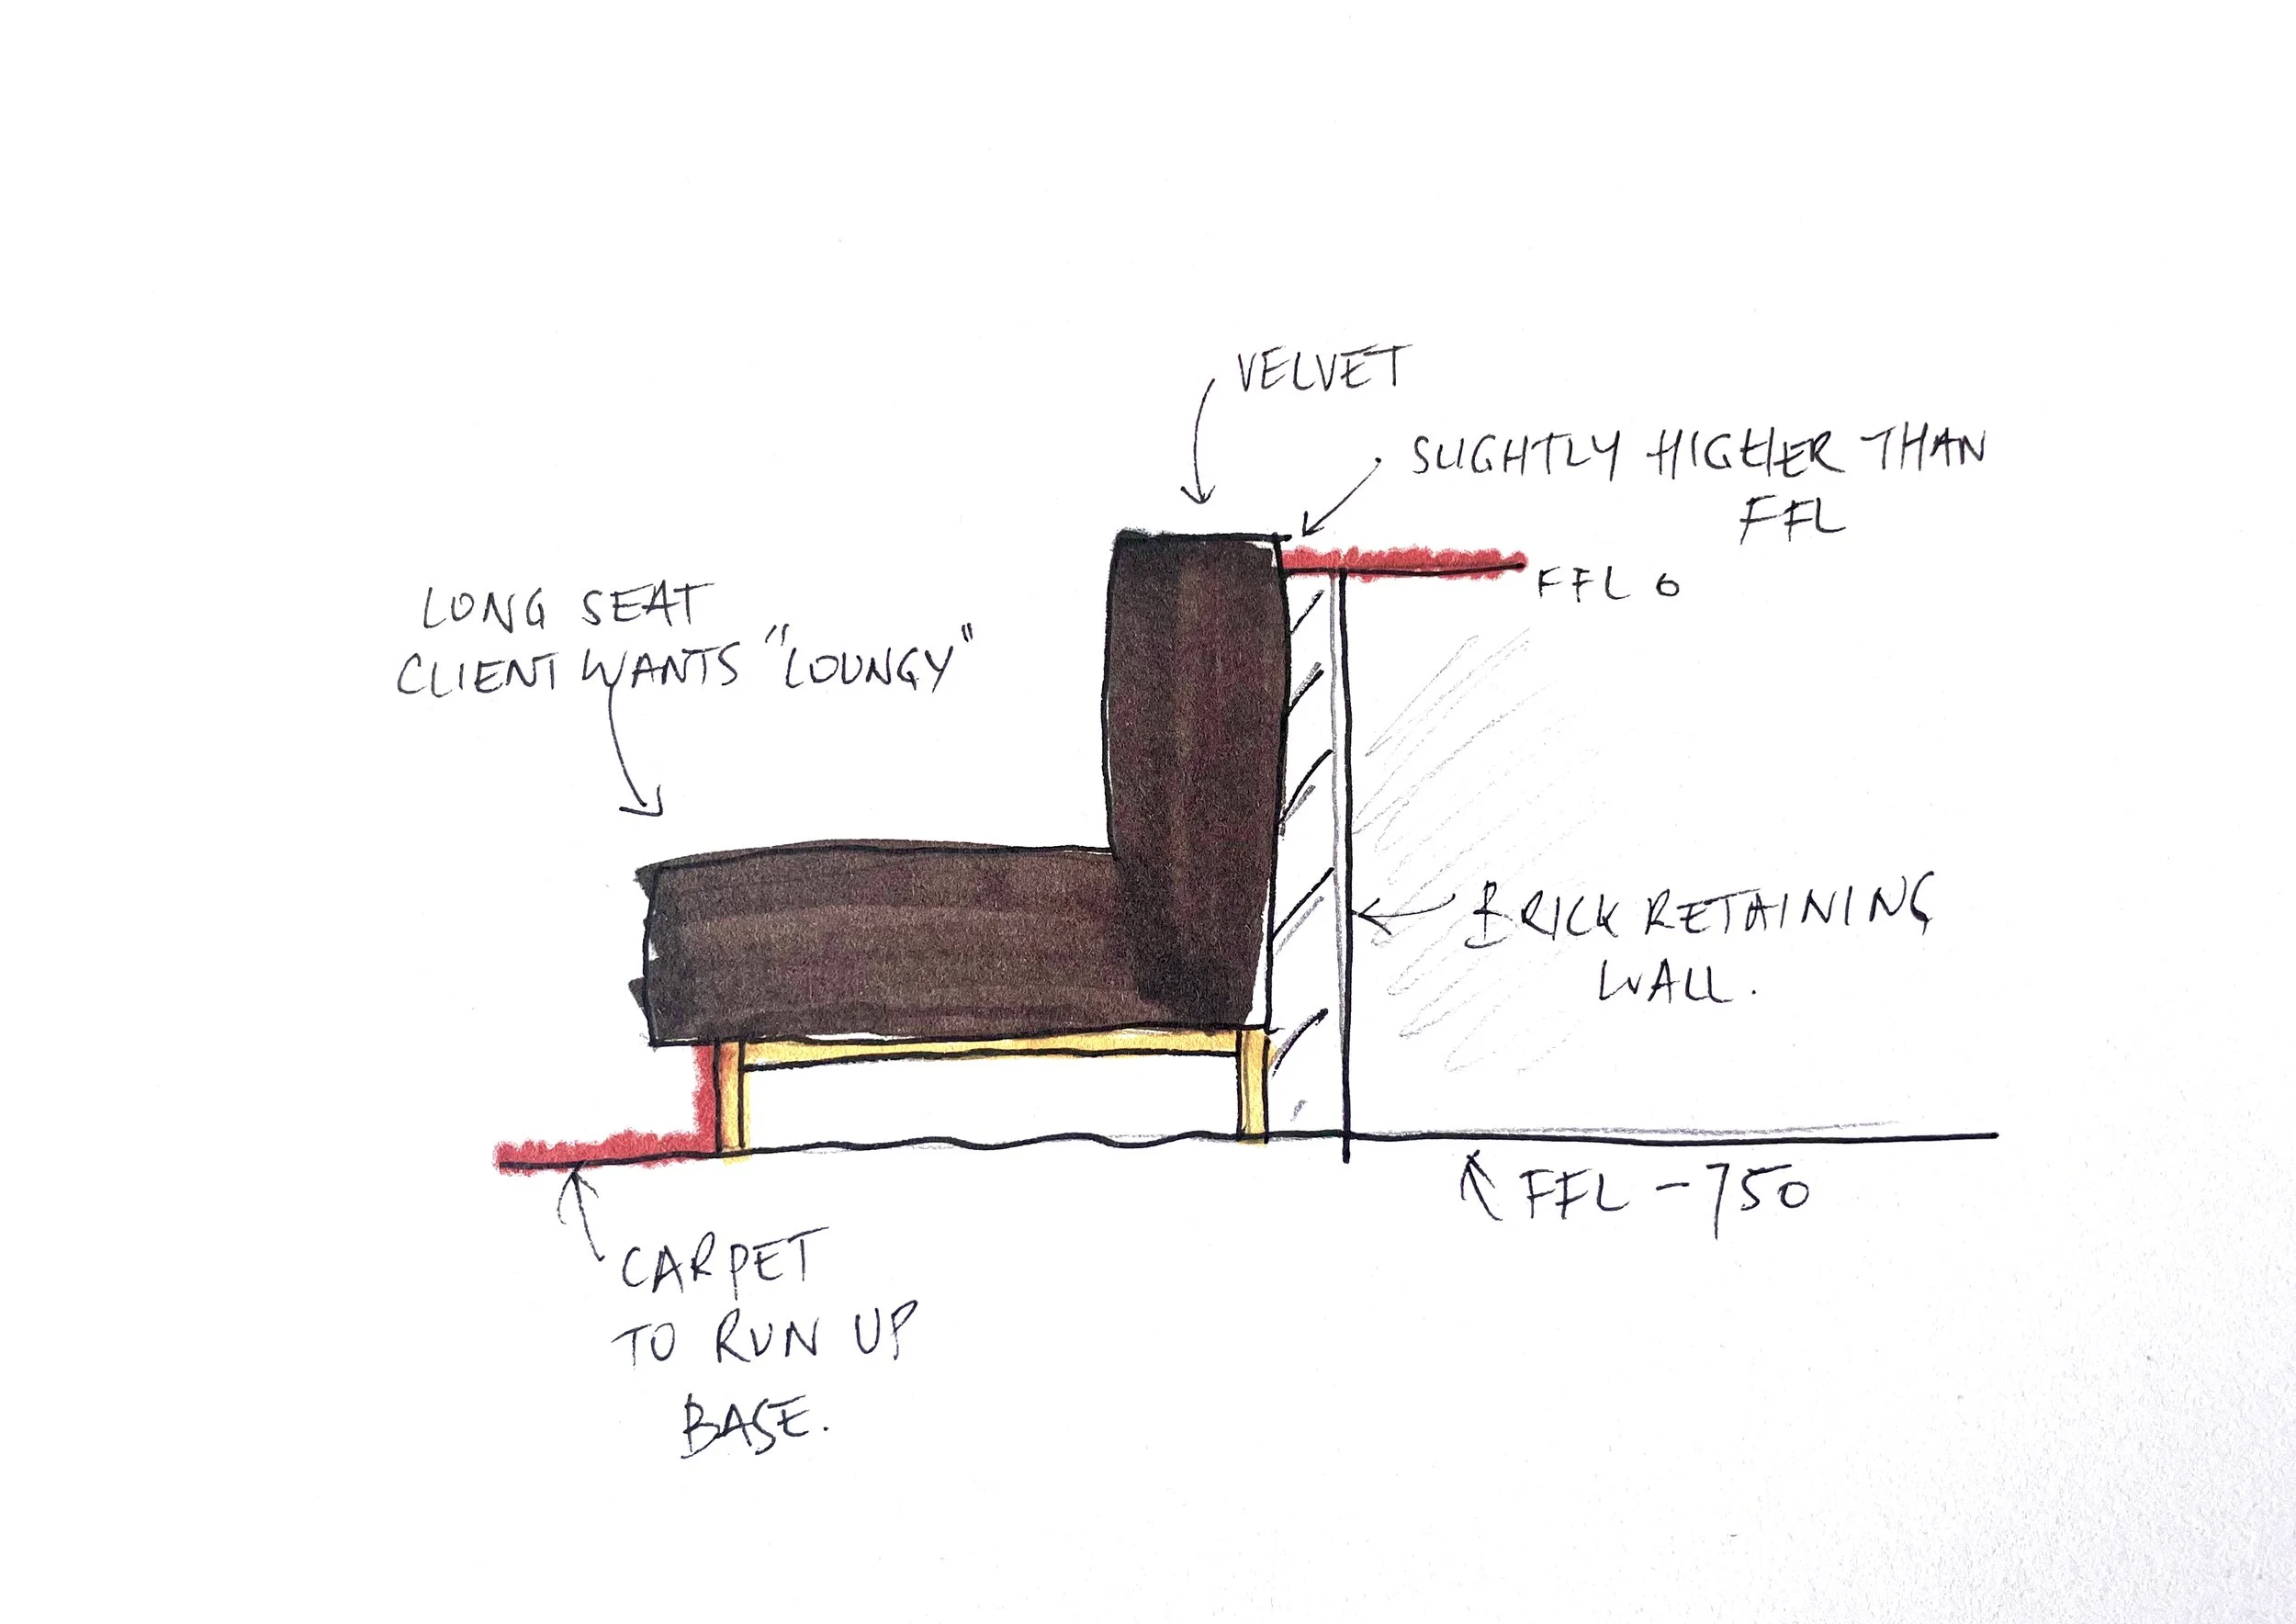 VELVET
SLIGHTLY HIGHER THAN
FFL
FFL 0
LONG SEAT
CLIENT WANTS "LOUNGY"
BRICK RETAINING
WALL.
FFL -750
CARPET
TO RUN UP
BASE.